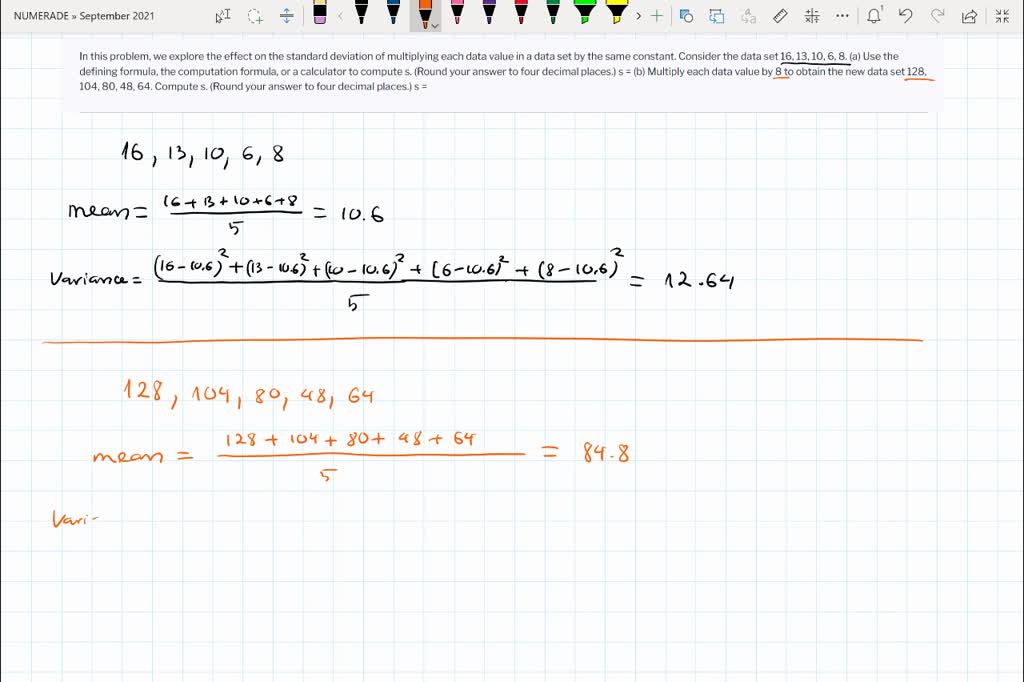 NUMERADE » September 2021
In this problem, we explore the effect on the standard deviation of multiplying each data value in a data set by the same constant. Consider the data set 16, 13, 10, 6, 8. (a) Use the
defining formula, the computation formula, or a calculator to compute s. (Round your answer to four decimal places.) s = (b) Multiply each data value by 8 to obtain the new data set 128,
104, 80, 48, 64. Compute s. (Round your answer to four decimal places.) s =
16, 13, 10, 6, 8
mean = (16+13+10+6+8)/5 = 10.6
Variance = ((16-10.6)²+(13-10.6)²+(10-10.6)²+(6-10.6)²+(8-10.6)²)/5 = 12.64
128, 104, 80, 48, 64
mean = (128+104+80+48+64)/5 = 84.8
Vari-